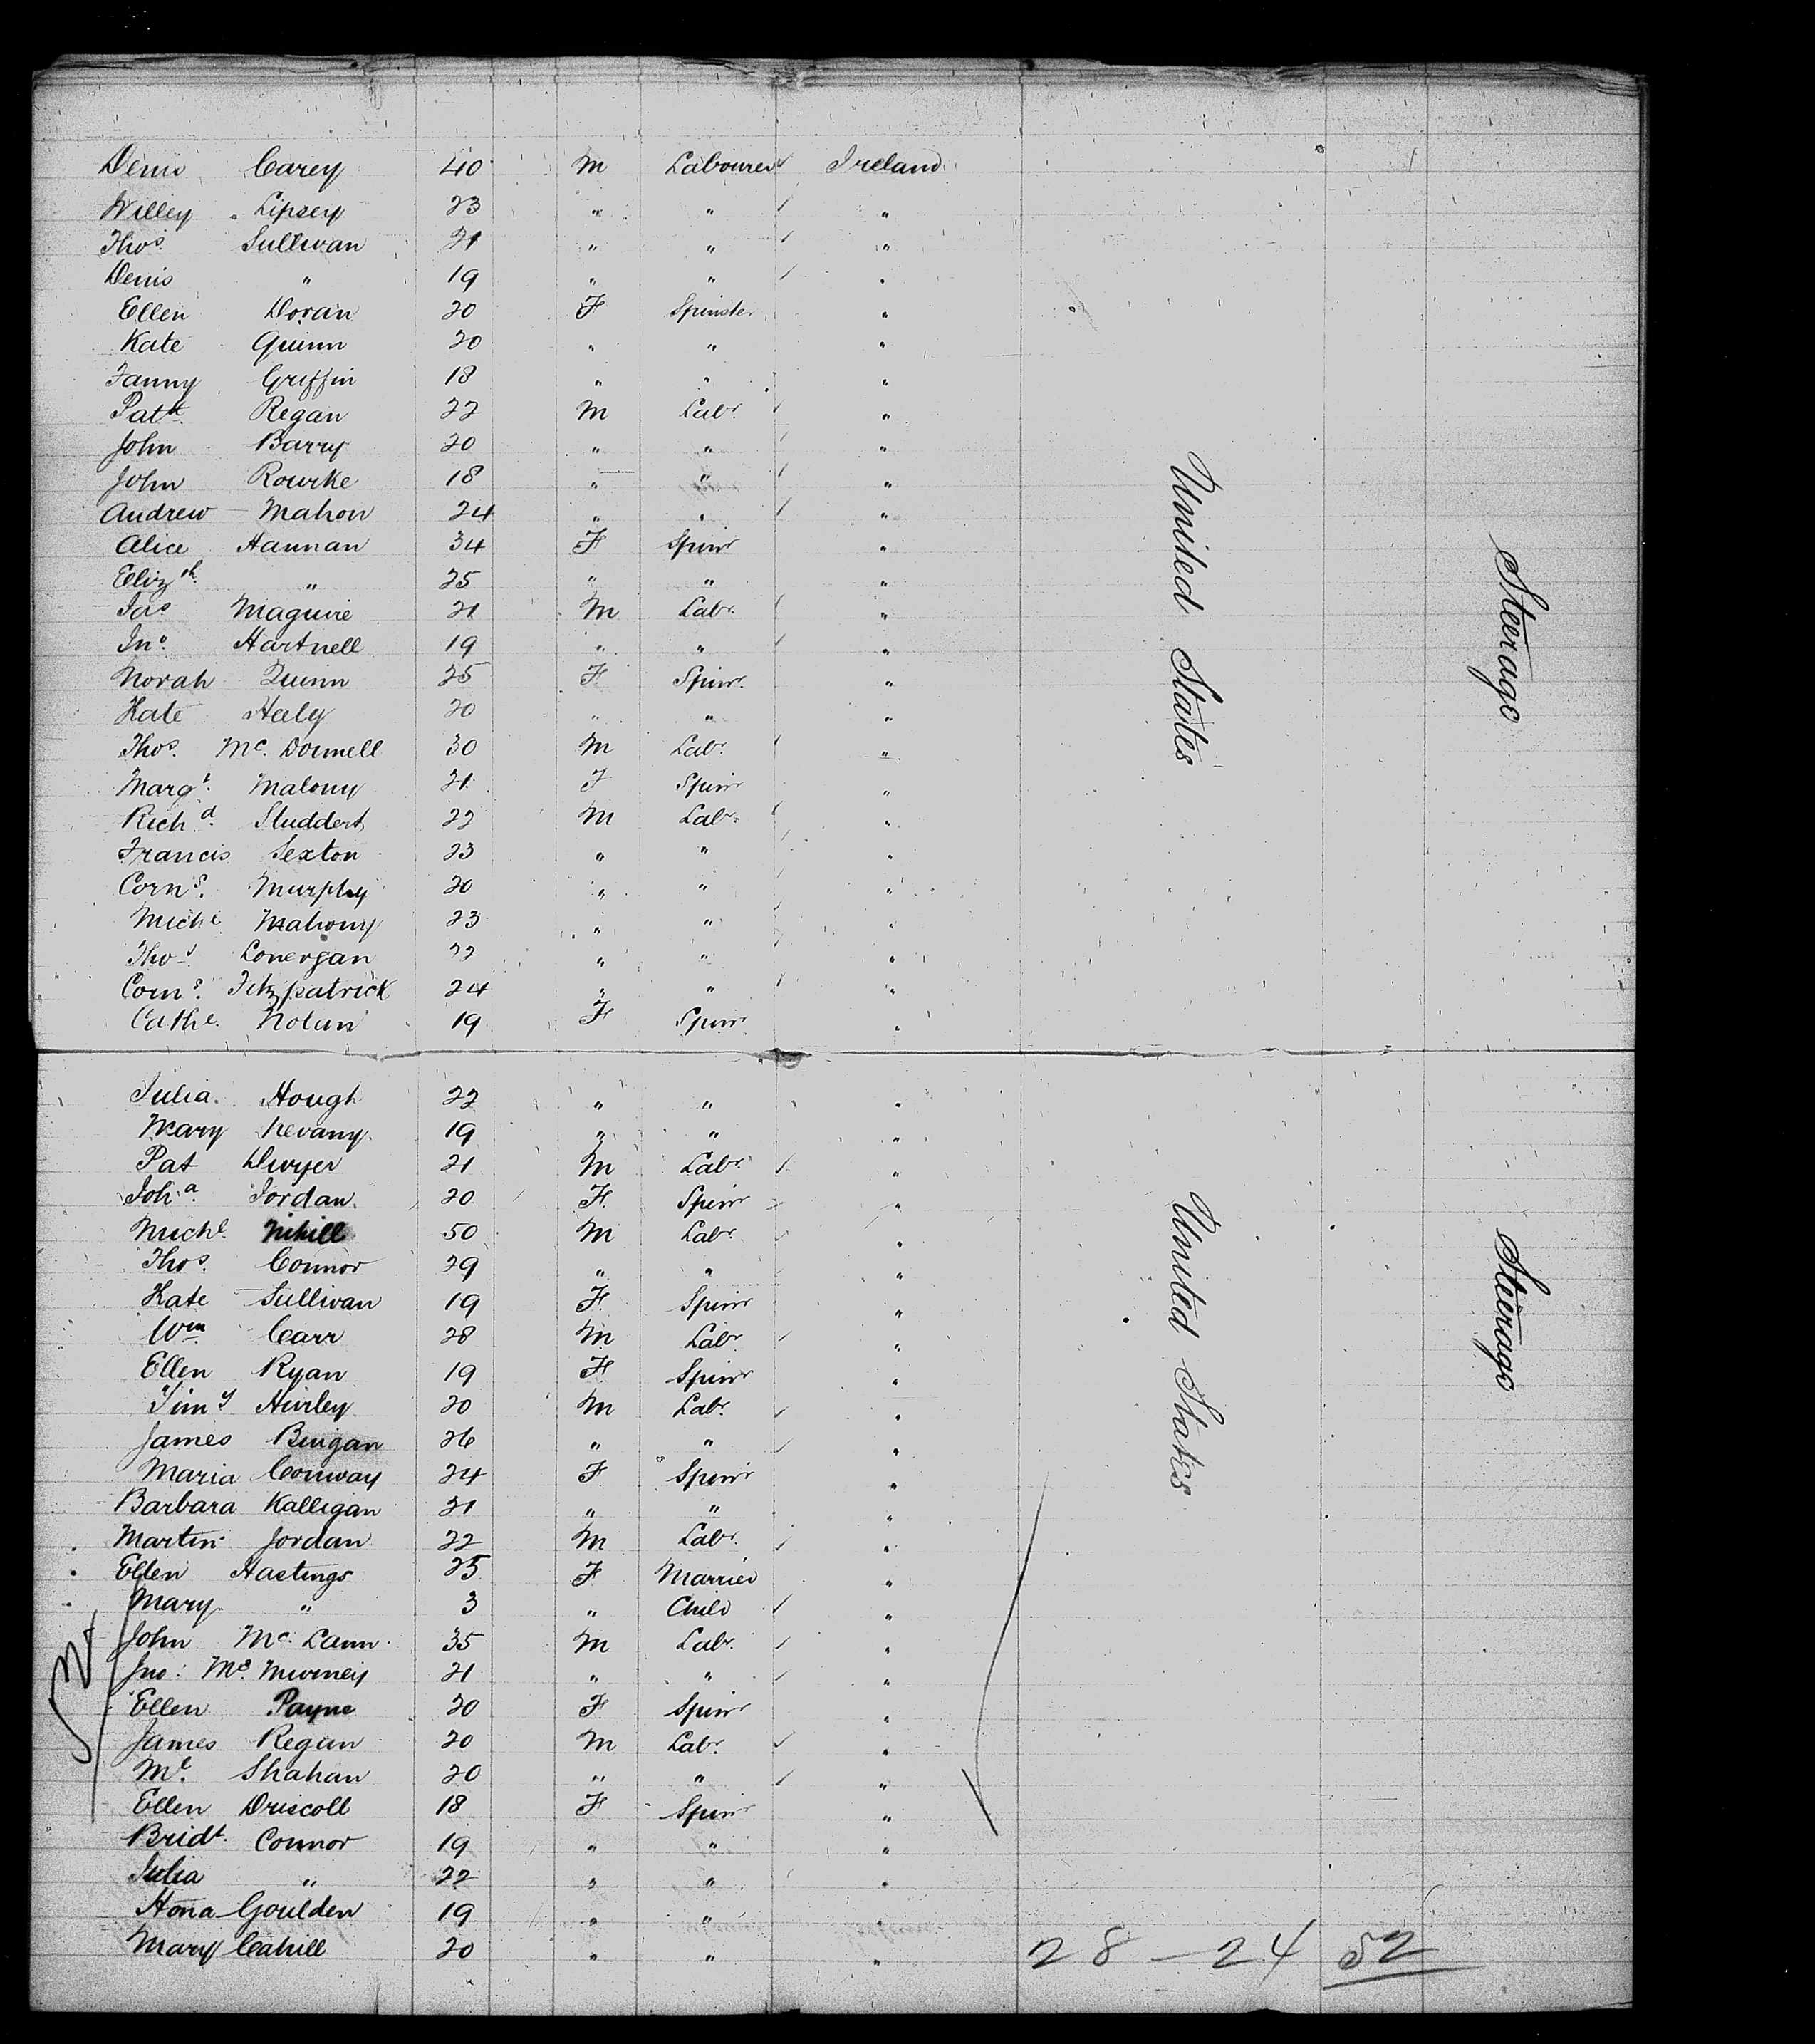 Denis Carey 40 M Labourer Ireland
Willey Lipsey 23 " " "
Thos. Sullivan 21 " " "
Denis " 19 " " "
Ellen Doran 20 F Spinster "
Kate Quinn 20 " " "
Fanny Griffin 18 " " "
Patk. Regan 22 M Labr. "
John Barry 20 " " "
John Rourke 18 " " "
Andrew Mahon 24 " " "
Alice Hannan 34 F Spinr "
Elizth. " 25 " " "
Jas Maguire 21 M Labr. "
Jno. Hartnell 19 " " "
Norah Quinn 25 F Spinr. "
Kate Healy 20 " " "
Thos. Mc. Donnell 30 M Labr. "
Margt. Malony 21 F Spinr "
Richd. Studdert 22 M Labr. "
Francis Sexton 23 " " "
Corns. Murphy 20 " " "
Michl Mahony 23 " " "
Thos Lonergan 22 " " "
Corns. Fitzpatrick 24 " " "
Cathe. Nolan 19 F Spinr "
United States
Steerage
Julia Hough 22 " " "
Mary Nevany 19 " " "
Pat Dwyer 21 M Labr. "
Joha. Jordan 20 F Spinr "
Michl. Nihill 50 M Labr. "
Thos. Connor 29 " " "
Kate Sullivan 19 F Spinr "
Wm Carr 28 M Labr. "
Ellen Ryan 19 F Spinr "
Timy Hurley 20 M Labr. "
James 26 " " "
Maria Conway 24 F Spinr "
Barbara Kalligan 21 " " "
Martin Jordan 22 M Labr. "
Ellen Hastings 25 F Married "
Mary " 3 " Child "
John Mc. Lann 35 M Labr. "
Jno: Mc. 21 " " "
Ellen Payne 20 F Spinr "
James Regan 20 M Labr. "
Ml. Shahan 20 " " "
Ellen Driscoll 18 F Spinr "
Bridt. Connor 19 " " "
Julia " 22 " " "
Hona Goulden 19 " " "
Mary Cahill 20 " " "
United States
Steerage
52
28 - 24 52